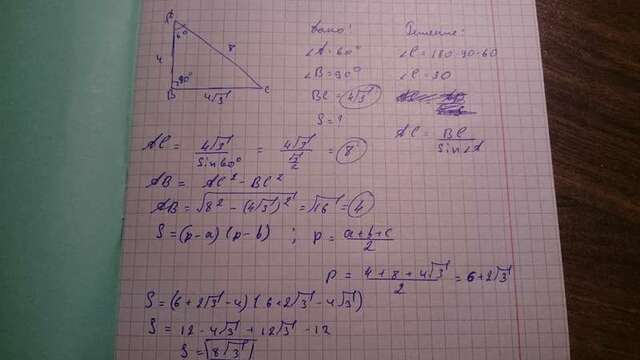 A
60°
4
8
90°
B
4√3
C
Дано:
∠A=60°
∠B=90°
BC=4√3
S=?
Решение:
∠C=180-90-60
∠C=30
AC = BC / sin∠A
AC = 4√3 / sin60° = 4√3 / (√3/2) = 8
AB = AC² - BC²
AB = √(8² - (4√3)²) = √16 = 4
S = (p-a)(p-b) ; p = (a+b+c) / 2
p = (4+8+4√3) / 2 = 6+2√3
S = (6+2√3-4)(6+2√3-4√3)
S = 12-4√3+12√3-12
S = 8√3